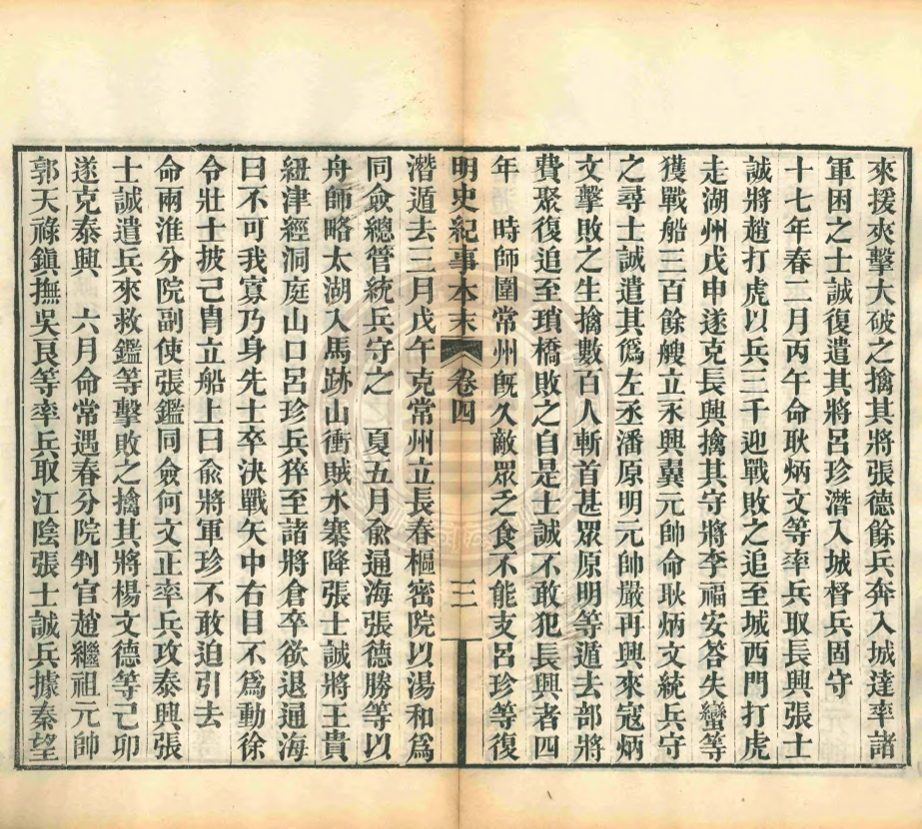 來援夾擊大破之擒其將張德餘兵奔入城達率諸
軍困之士誠復遣其將呂珍潛入城督兵固守
十七年春二月丙午命耿炳文等率兵取長興張士
誠將趙打虎以兵三千迎戰敗之追至城西門打虎
走湖州戊申遂克長興擒其守將李福安答失蠻等
獲戰船三百餘艘立永興翼元帥命耿炳文統兵守
之尋士誠遣其僞左丞潘原明元帥嚴再興來寇炳
文擊敗之生擒數百人斬首甚眾原明等遁去部將
費聚復追至瑣橋敗之自是士誠不敢犯長興者四
年　時師圍常州旣久敵眾乏食不能支呂珍等復
明史紀事本末　卷四　三
潛遁去三月戊午克常州立長春樞密院以湯和爲
同僉總管統兵守之　夏五月俞通海張德勝等以
舟師略太湖入馬跡山衝賊水寨降張士誠將王貴
鈕津經洞庭山口呂珍兵猝至諸將倉卒欲退通海
曰不可我寡乃身先士卒決戰矢中右目不爲動徐
令壯士披己冑立船上曰俞將軍珍不敢迫引去
命兩淮分院副使張鑑同僉何文正率兵攻泰興張
士誠遣兵來救鑑等擊敗之擒其將楊文德等己卯
遂克泰興　六月命常遇春分院判官趙繼祖元帥
郭天祿鎭撫吳良等率兵取江陰張士誠兵據秦望